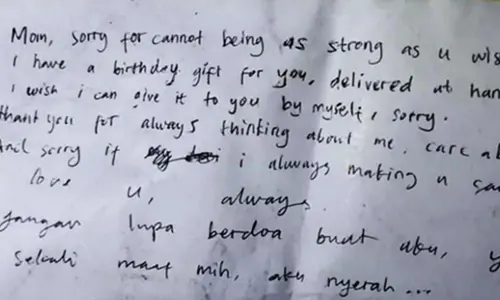 Mom, sorry for cannot being as strong as u wis
I have a birthday gift for you, delivered at han
I wish i can give it to you by myself, sorry.
thank you for always thinking about me, care a
And sorry if i always making u sa
love u, always
Jangan lupa berdoa buat aku, y
Sekali maaf mih, aku nyerah ...